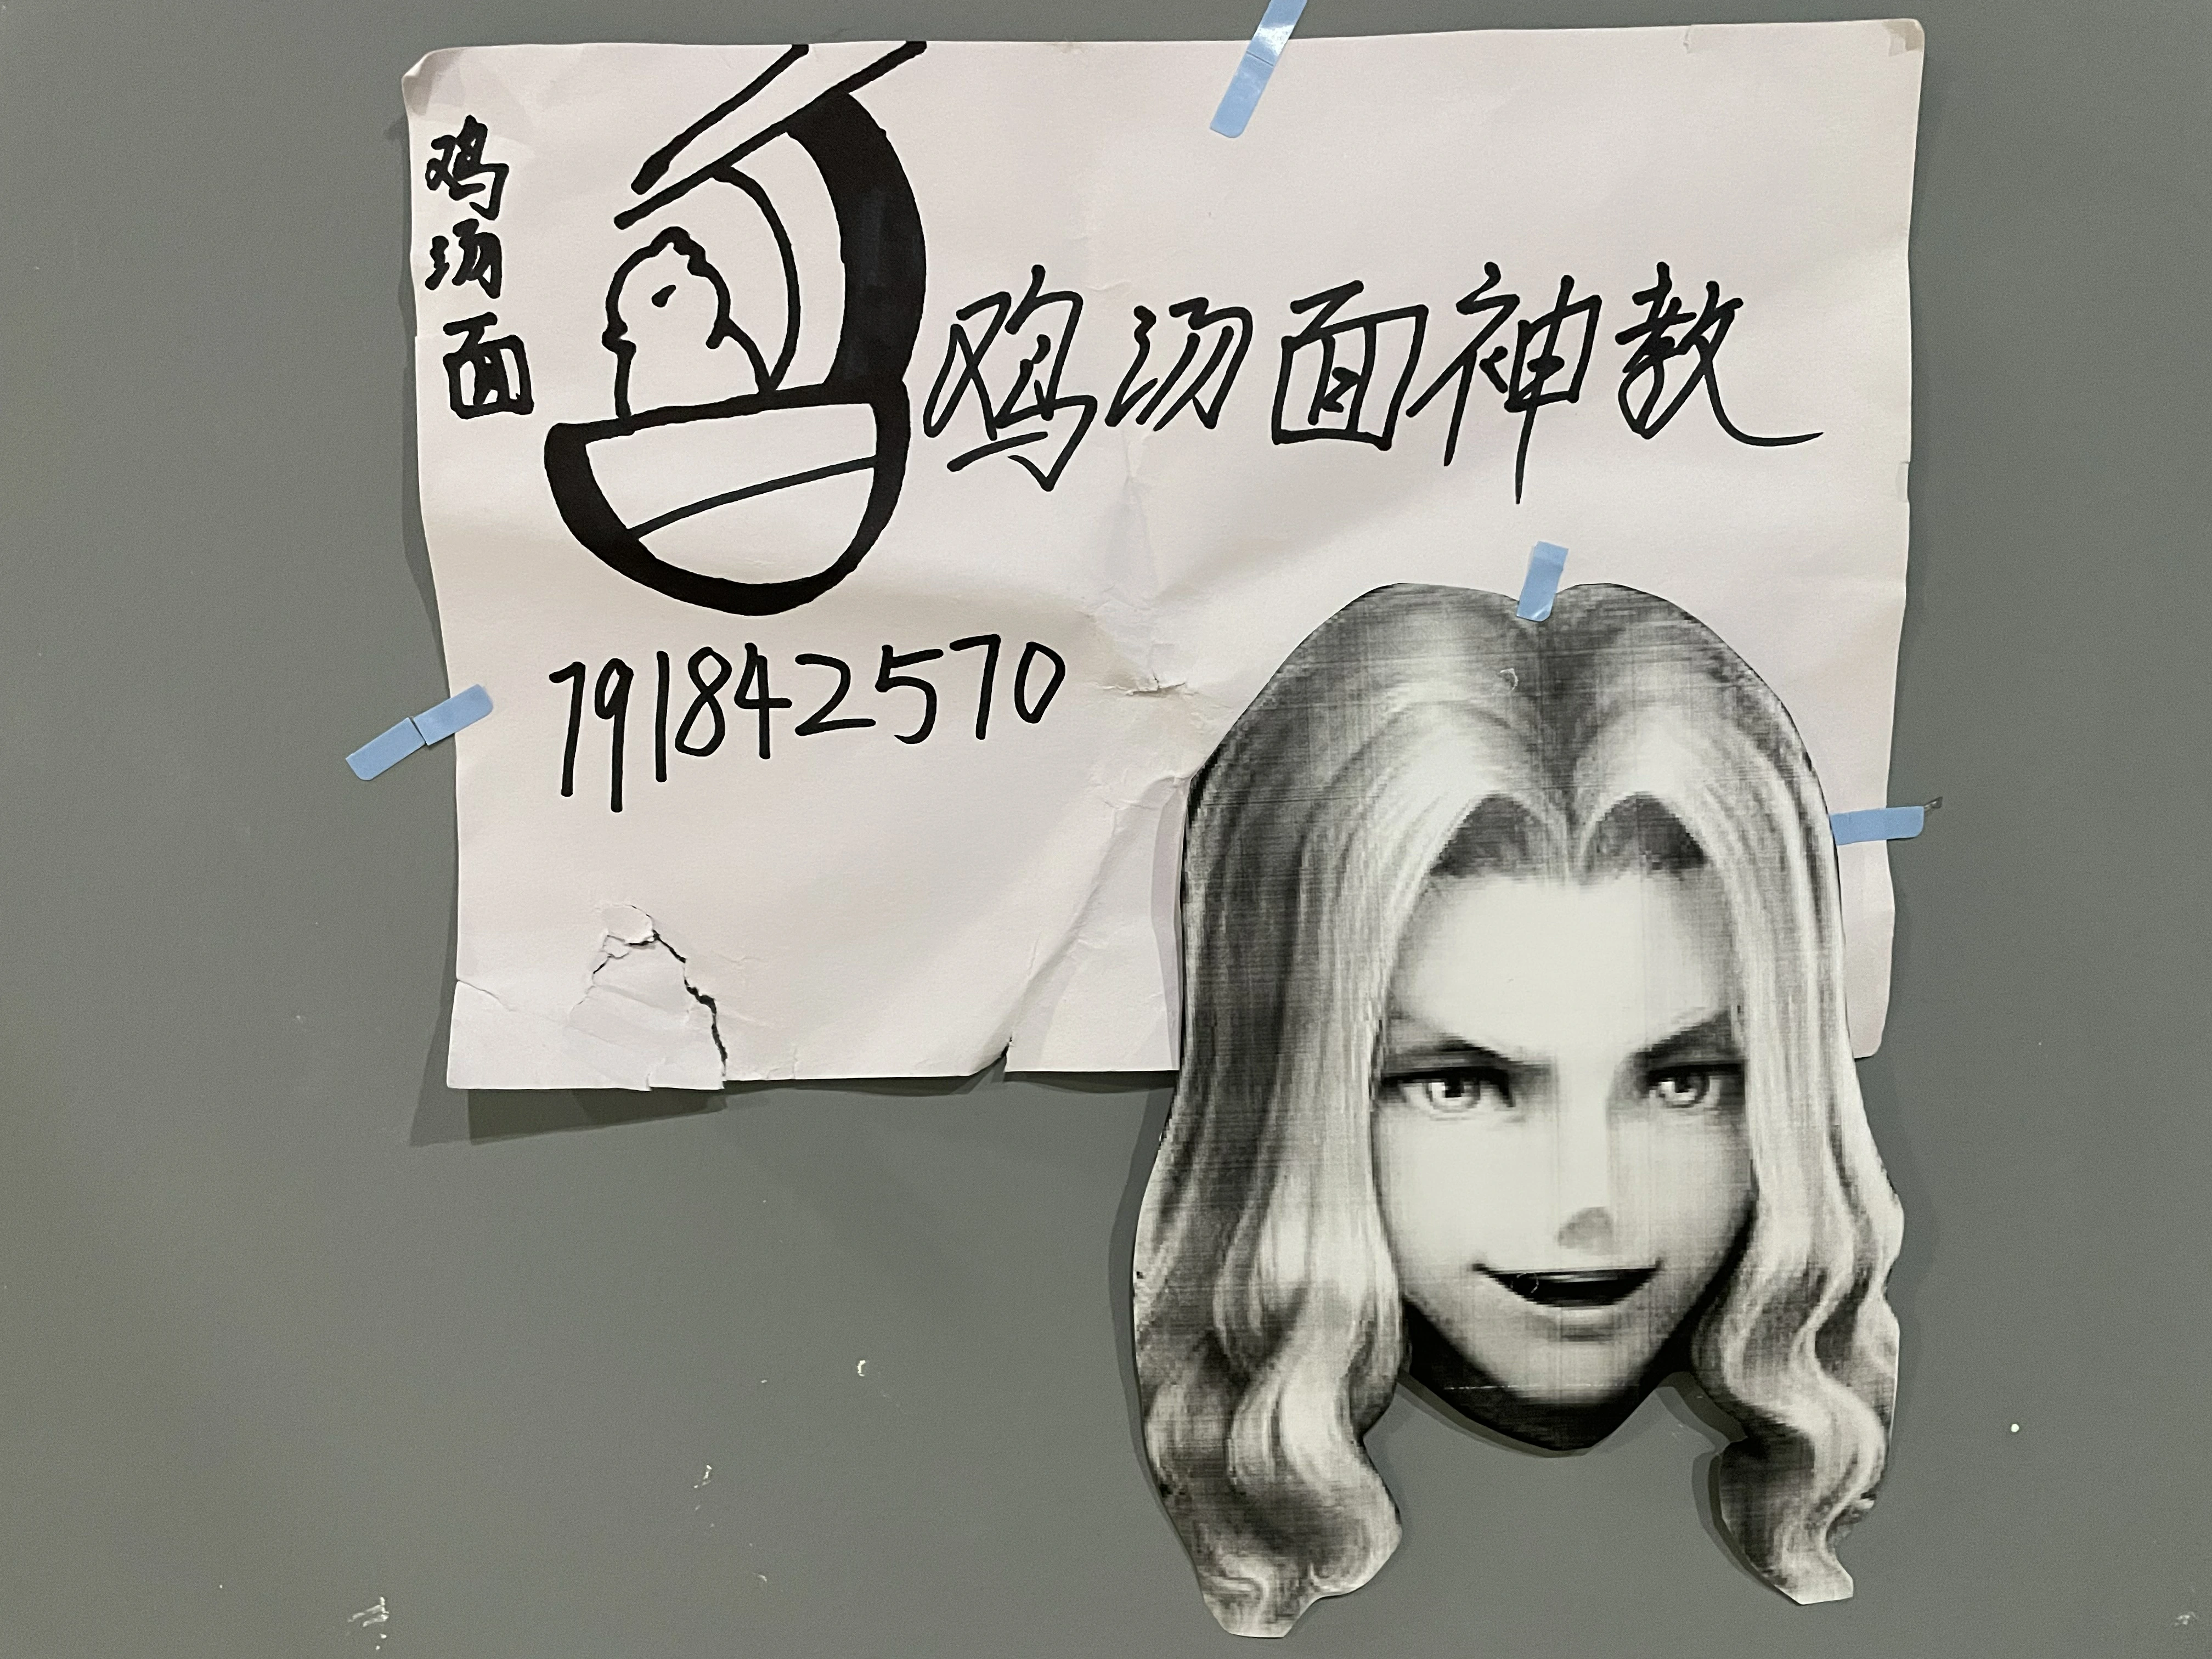 鸡汤面
鸡汤面神教
791842570